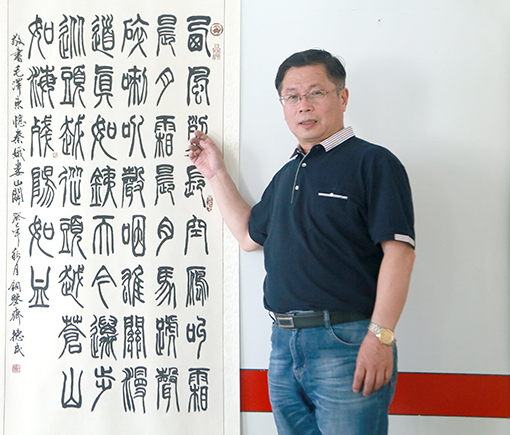 西風烈長空雁叫霜
晨月霜晨月馬蹄聲
碎喇叭聲咽雄關漫
道真如鐵而今邁步
從頭越從頭越蒼山
如海殘陽如血
敬書毛澤東憶秦娥婁山關 癸巳年秋月銅齋德民